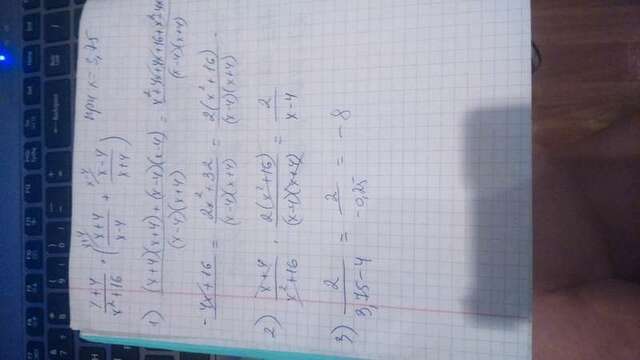 x+4/x²+16 · (x+4/x-4 + x-4/x+4) при x = 3,75
1) (x+4)(x+4)+(x-4)(x-4)/(x-4)(x+4) = x²+4x+4x+16+x²-4x/(x-4)(x+4)
-4x+16 = 2x²+32/(x-4)(x+4) = 2(x²+16)/(x-4)(x+4) .
2) x+4/x²+16 · 2(x²+16)/(x-4)(x+4) = 2/x-4
3) 2/3,75-4 = 2/-0,25 = -8